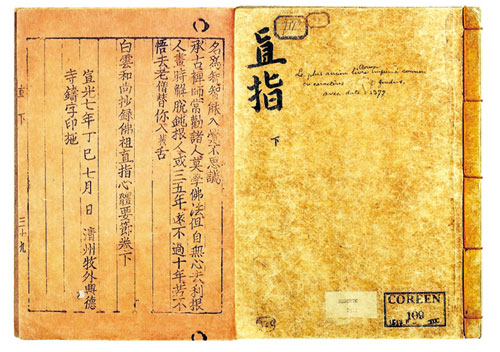 名爲智知入不思議
承古禪師常勸諸人莫學佛法但自無心去利根
人晝時解脫鈍根人或三五年遠不過十年若不
悟去老僧替你入舌
白雲和尙抄録佛祖直指心體要節卷下
宣光七年丁巳七月 日 淸州牧外興德
寺鑄字印施
直下 三十九
III
直指
下
Coréen
Le plus ancien livre imprimé connu
en caractères fondus,
avec date = 1377
COREEN
109